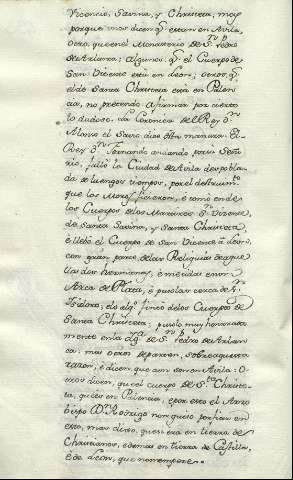 Vicencio, Savina, y Christeta, mas
porque unos dicen qe. estan en Avila,
otro, que en el Monasterio de Sn. Pedro
de Arlanza; algunos qe. el Cuerpo de
San Vicente está en Leon; otros, qe.
el de Santa Christeta está en Palen-
cia, no pretendo afirmar por cierto
lo dudoso. La Coronica del Rey Dn.
Alonso el Savio dice esta manera: El
Rey Dn. Fernando andando por su Seño-
rio, falló la Ciudad de Avila despobla-
da de luengos tiempos, por el destruim.to
que los Moros ficieron, e como ende
los Cuerpos de los Martires Sn. Vicente,
de Santa Savina, y Santa Christeta,
é llebó el Cuerpo de San Vicente á Leon,
con gran parte de las Reliquias de aque-
llas dos hermanas, é metidas en un
Arca de Plata, é pusolas cerca de Sn.
Isidoro; é lo al qe. fincó de los Cuerpos de
Santa Christeta, pusolo muy honrada-
mente en la Yga. de Sn. Pedro de Arlan-
za; mas otros departen, sobre aquesta
razon; é dicen que aun son en Avila: O-
tros dicen, que el cuerpo de Sta. Christe-
ta, que es en Palencia, e por esto el Arzo-
bispo Dn. Rodrigo non quiso porfiar en
esto, mas dixo, que era en tierra de
Christianos, e demas en tierra de Castilla,
é de Leon, que non empece.